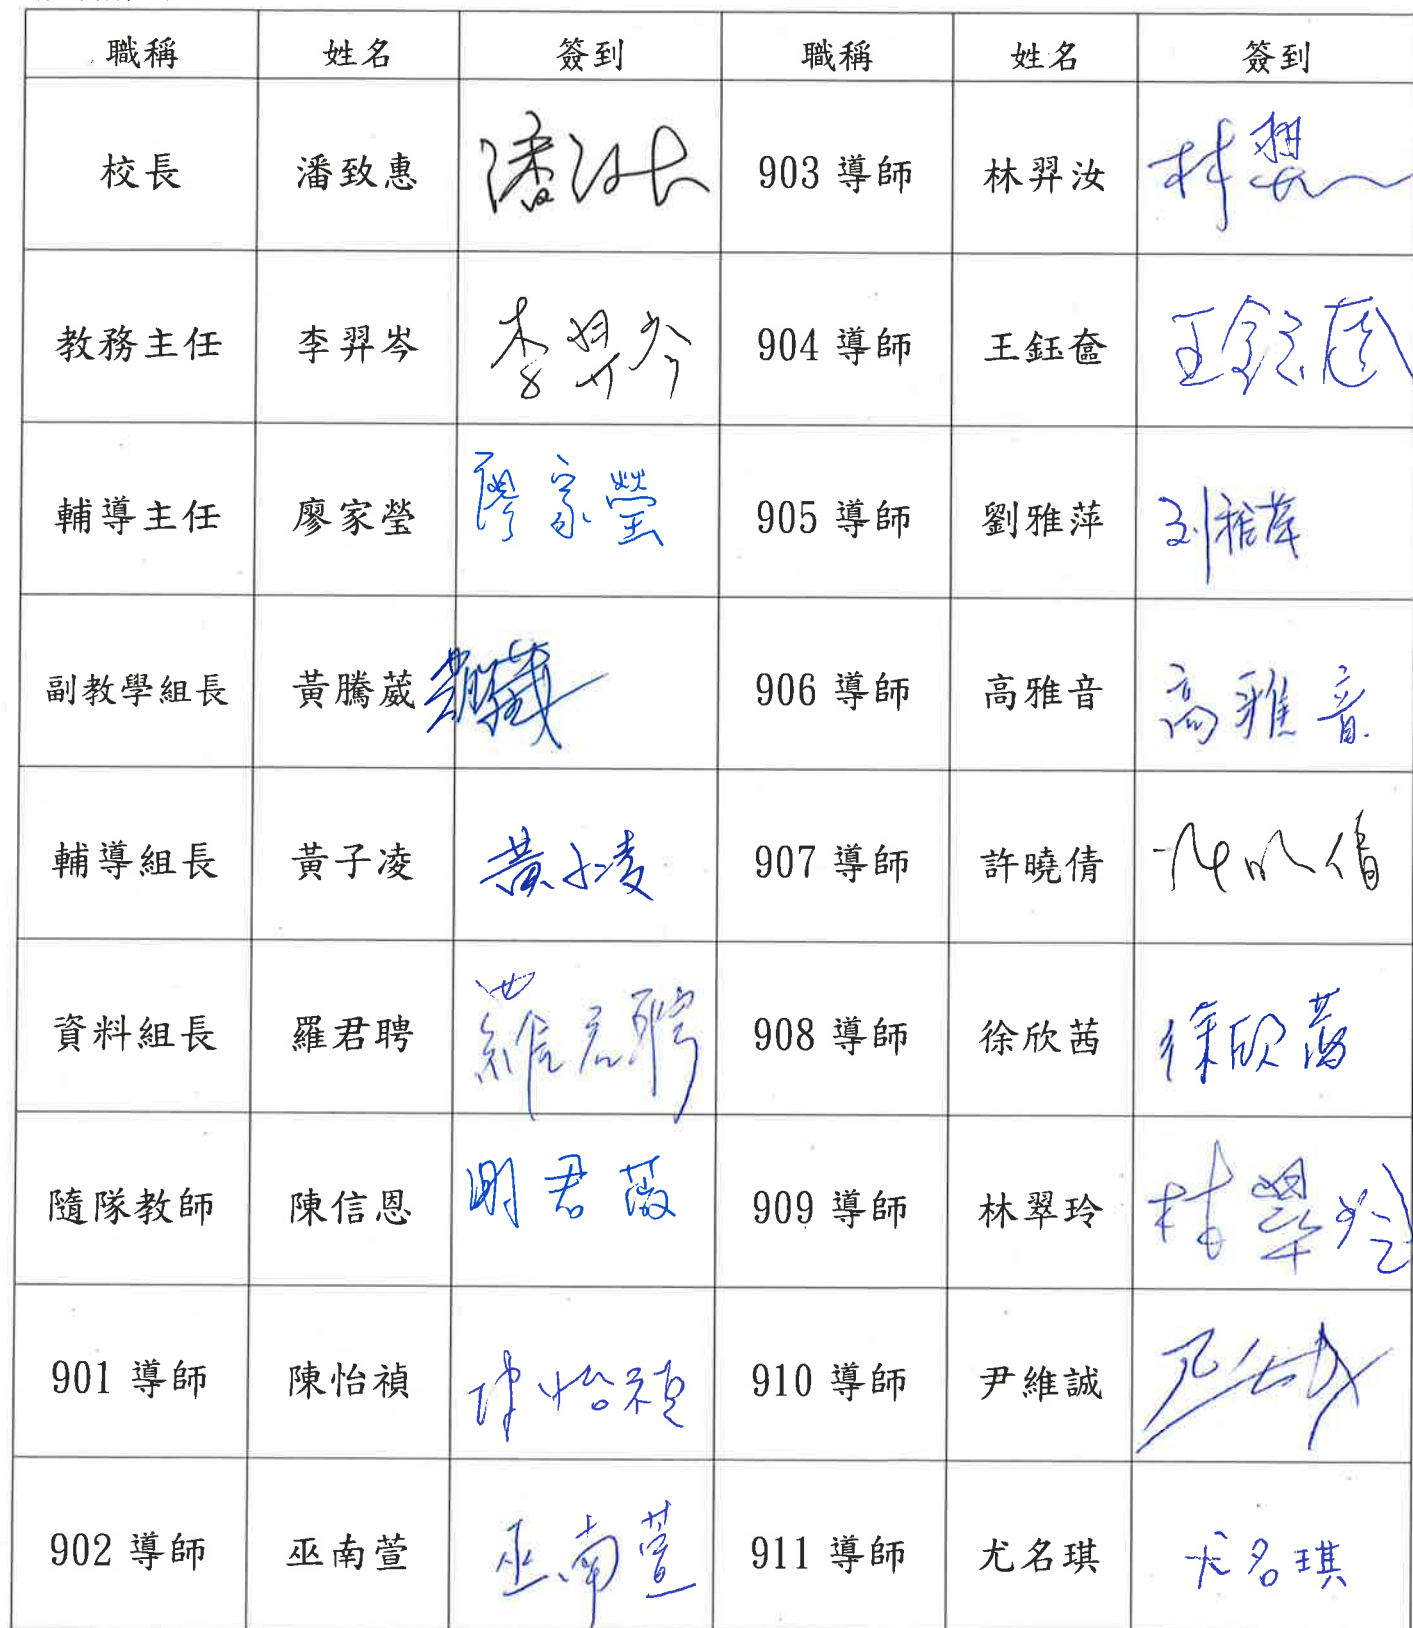 職稱 姓名 簽到 職稱 姓名 簽到
校長 潘致惠 903 導師 林羿汝
教務主任 李羿岑 李羿岑 904 導師 王鈺蓥 王鈺
輔導主任 廖家瑩 廖家瑩 905 導師 劉雅萍 刘雅萍
副教學組長 黃騰葳 906 導師 高雅音 高雅音
輔導組長 黃子凌 黃子凌 907 導師 許曉倩 許曉倩
資料組長 羅君聘 羅君聘 908 導師 徐欣茜 徐欣茜
隨隊教師 陳信恩 君薇 909 導師 林翠玲 林翠玲
901 導師 陳怡禎 陳怡禎 910 導師 尹維誠
902 導師 巫南萱 巫南萱 911 導師 尤名琪 尤名琪